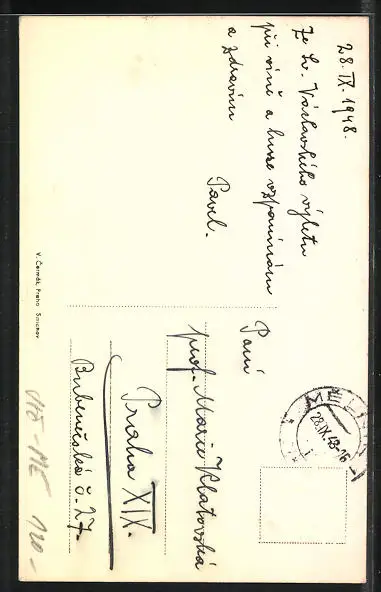 28.IX.1948.
Ze Sv. Václavského výletu
při víně a huse vzpomínám
a zdravím
Pavel.
V. Čermák, Praha Smíchov
Paní
prof. Marie Klatovská
Praha XIX.
Bubenečská č. 27.
MĚL
28.IX.48-16
MĚ-ME 120-